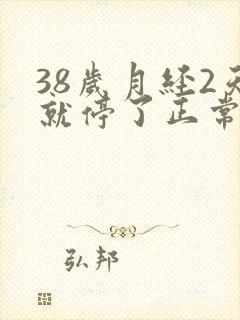 38歲月经2天
就停了正常
弘邦